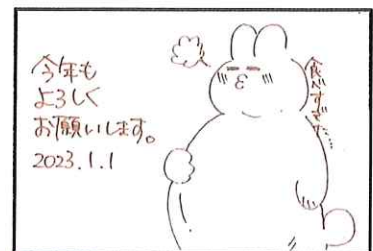 今年も
よろしく
お願いします。
2023.1.1
食べすぎた…